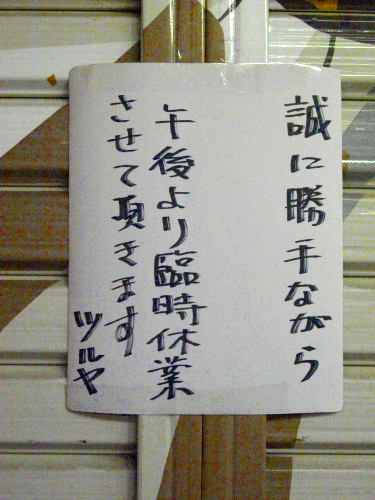 誠に勝手ながら
午後より臨時休業
させて頂きます
ツルヤ